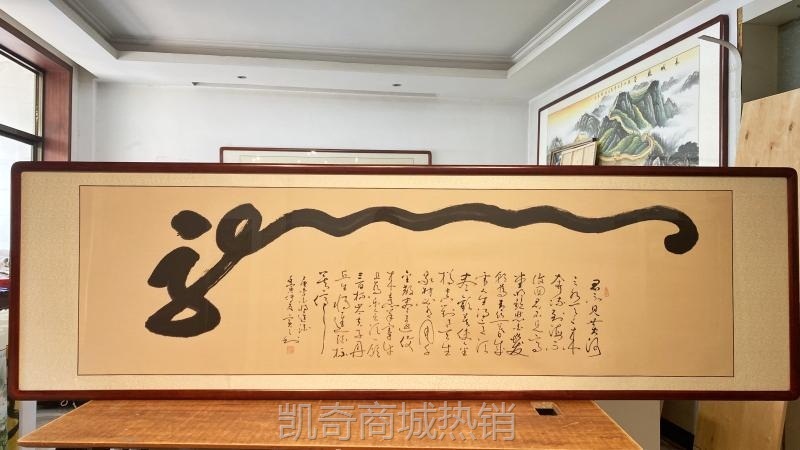 龙
君不见黄河
之水天上来
奔流到海不
复回君不见高
堂明镜悲白发
朝如青丝暮成
雪人生得意须
尽欢莫使金
樽空对月天生
我材必有用千
金散尽还复
来烹羊宰牛
且为乐会须一饮
三百杯岑夫子丹
丘生将进酒杯
莫停
凯奇商城热销